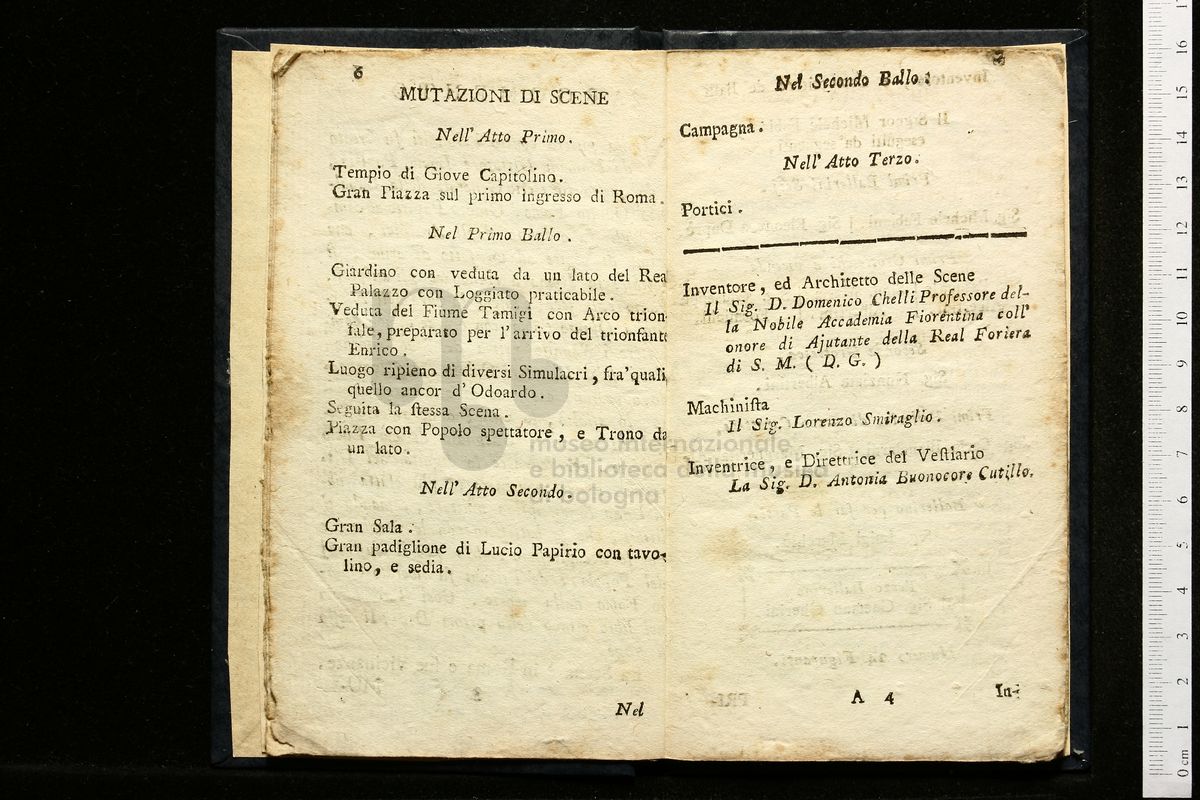 6
MUTAZIONI DI SCENE
Nell' Atto Primo.
Tempio di Giove Capitolino.
Gran Piazza sul primo ingresso di Roma.
Nel Primo Ballo.
Giardino con veduta da un lato del Rea
Palazzo con Loggiato praticabile.
Veduta del Fiume Tamigi con Arco trion-
fale, preparato per l'arrivo del trionfante
Enrico.
Luogo ripieno di diversi Simulacri, fra' quali
quello ancor d' Odoardo.
Seguita la stessa Scena.
Piazza con Popolo spettatore, e Trono da
un lato.
Nell' Atto Secondo.
Gran Sala.
Gran padiglione di Lucio Papirio con tavo-
lino, e sedia.
Nel
Nel Secondo Ballo.
Campagna.
Nell' Atto Terzo.
Portici.
Inventore, ed Architetto delle Scene
Il Sig. D. Domenico Chelli Professore del-
la Nobile Accademia Fiorentina coll'
onore di Ajutante della Real Foriera
di S. M. ( D. G. )
Machinista
Il Sig. Lorenzo Smiraglio.
Inventrice, e Direttrice del Vestiario
La Sig. D. Antonia Buonocore Cutillo.
A 4
In-
museo internazionale
e biblioteca della musica
di bologna
0 cm 1 2 3 4 5 6 7 8 9 10 11 12 13 14 15 16